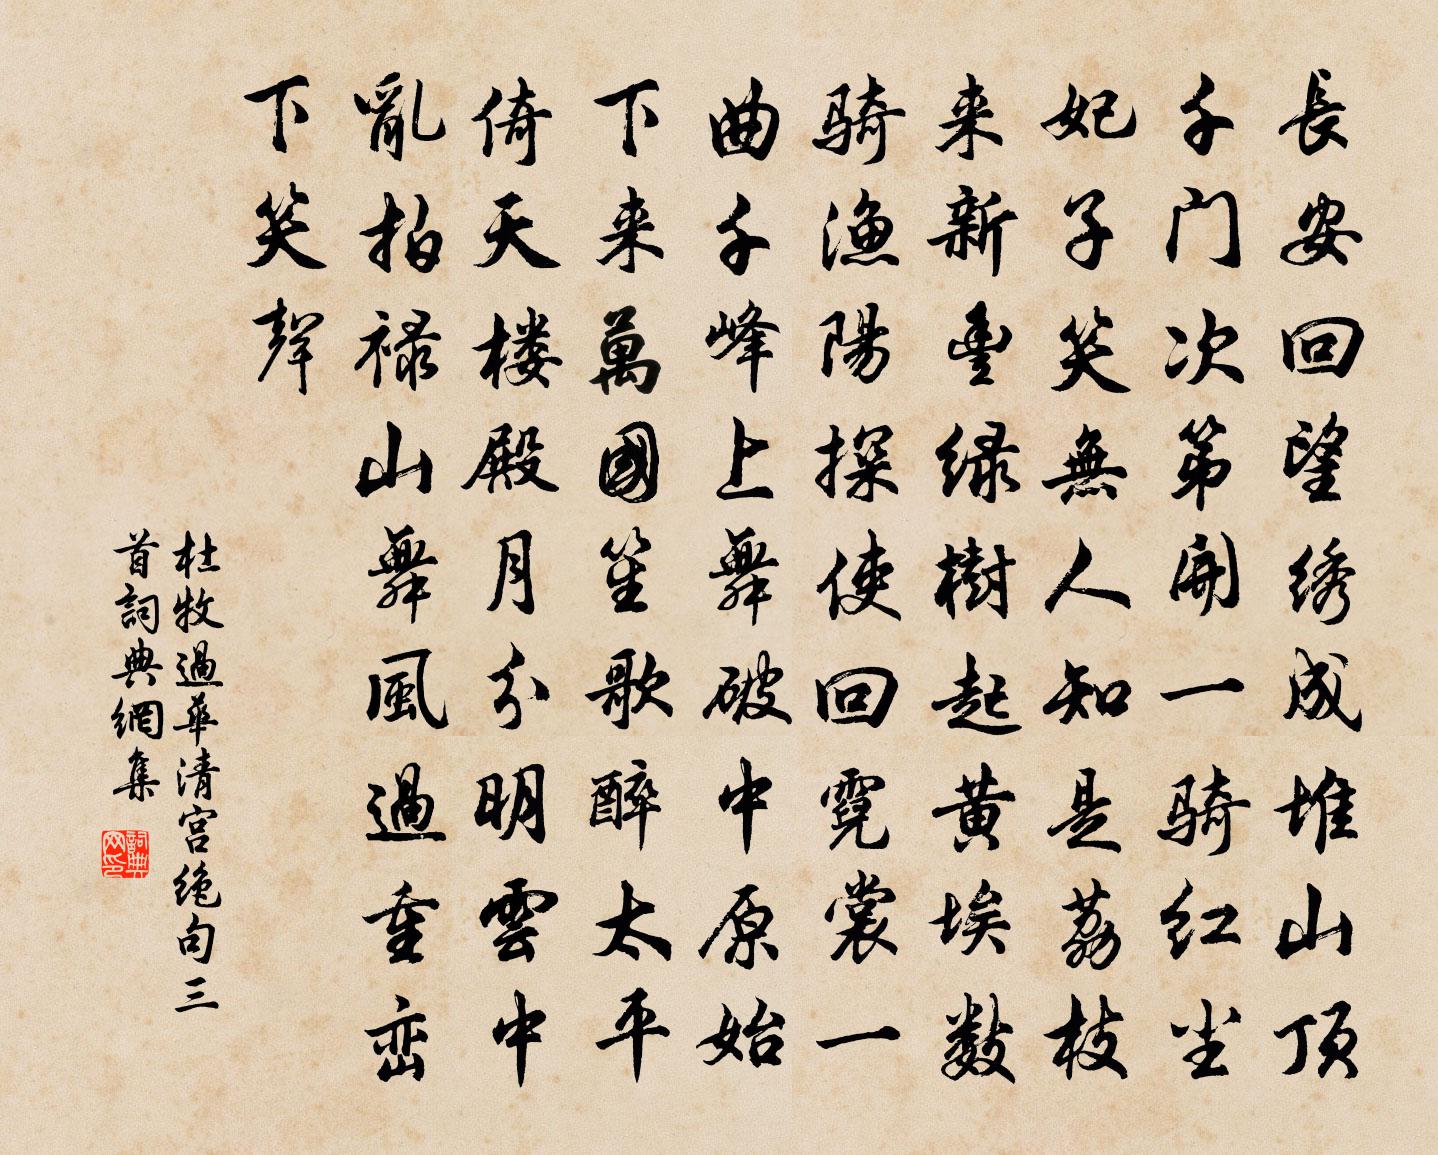 長安回望绣成堆山頂
千门次第開一骑红尘
妃子笑無人知是荔枝
来新豊緑樹起黄埃数
骑漁陽探使回霓裳一
曲千峰上舞破中原始
下来萬國笙歌醉太平
倚天楼殿月分明雲中
亂拍禄山舞風過重峦
下笑聲
杜牧過華清宫绝句三
首詞典網集
詞典网印